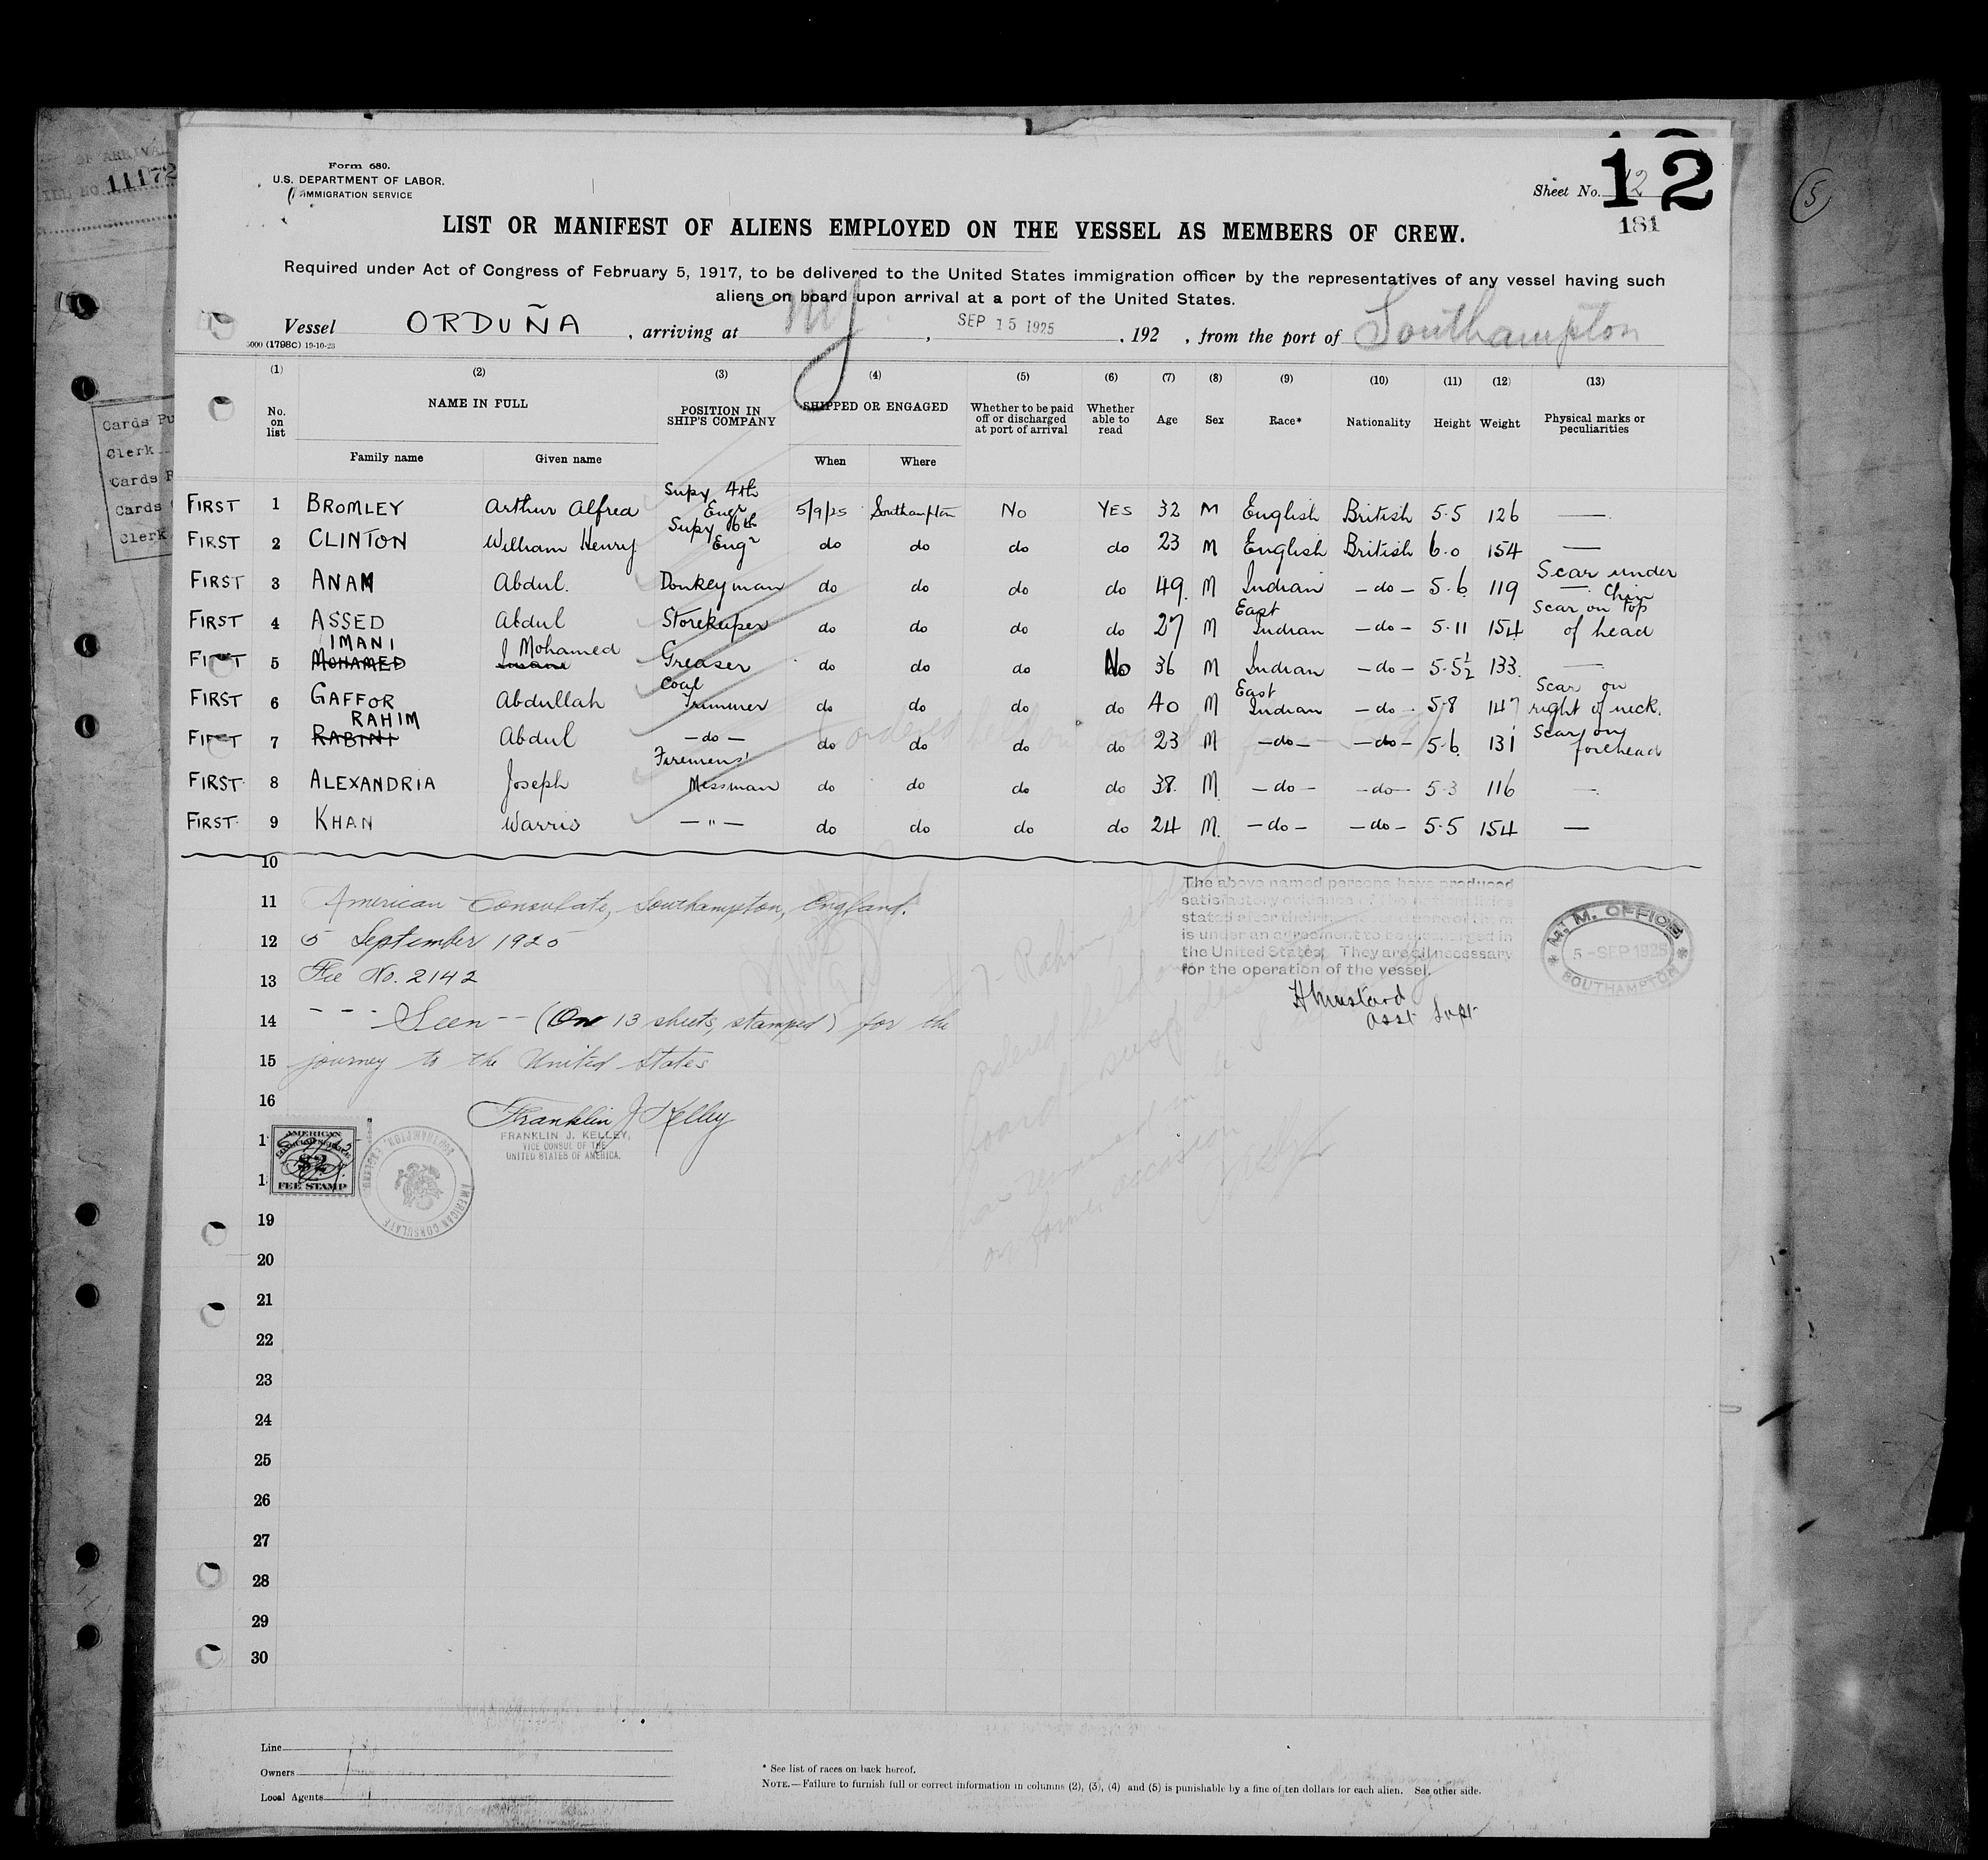 12
Form 680.
U.S. DEPARTMENT OF LABOR.
IMMIGRATION SERVICE
Sheet No. 12
181
5
11172
LIST OR MANIFEST OF ALIENS EMPLOYED ON THE VESSEL AS MEMBERS OF CREW.
Required under Act of Congress of February 5, 1917, to be delivered to the United States immigration officer by the representatives of any vessel having such
aliens on board upon arrival at a port of the United States.
Vessel ORDUÑA , arriving at NY , SEP 15 1925 , 192 , from the port of Southampton
5000 (1798C) 19-10-23
(1) (2) (3) (4) (5) (6) (7) (8) (9) (10) (11) (12) (13)
No. on list NAME IN FULL POSITION IN SHIP'S COMPANY SHIPPED OR ENGAGED Whether to be paid off or discharged at port of arrival Whether able to read Age Sex Race* Nationality Height Weight Physical marks or peculiarities
Family name Given name When Where
FIRST 1 BROMLEY Arthur Alfred Supy 4th Engr 5/9/25 Southampton No YES 32 M English British 5.5 126 —
FIRST 2 CLINTON William Henry Supy 6th Engr do do do do 23 M English British 6.0 154 —
FIRST 3 ANAM Abdul. Donkeyman do do do do 49. M Indian -do- 5.6 119 Scar under Chin
FIRST 4 ASSED Abdul Storekeeper do do do do 27 M East Indian -do- 5.11 154 Scar on top of head
FIRST 5 MOHAMED IMANI Imani J Mohamed Greaser do do do No 36 M Indian -do- 5.5½ 133 —
FIRST 6 GAFFOR Abdullah Coal Trimmer do do do do 40 M East Indian -do- 5.8 147 Scar on right of neck.
FIRST 7 RABINI RAHIM Abdul -do- do do do do 23 M -do- -do- 5.6 131 Scar on forehead
FIRST 8 ALEXANDRIA Joseph Firemens' Messman do do do do 38. M. -do- -do- 5.3 116 —
FIRST 9 KHAN Warris -"- do do do do 24 M. -do- -do- 5.5 154 —
10
11 American Consulate, Southampton, England.
12 5 September 1925
13 Fee No. 2142
14 - - - Seen - - (On 13 sheets, stamped) for the
15 journey to the United States
16 Franklin J Kelley
FRANKLIN J. KELLEY,
VICE CONSUL OF THE
UNITED STATES OF AMERICA.
AMERICAN
$2
FEE STAMP
AMERICAN CONSULATE
SOUTHAMPTON, ENGLAND
The above named persons have produced
satisfactory evidence of the nationalities
stated after their
is under an agreement to be discharged in
the United States. They are all necessary
for the operation of the vessel.
H Mustard
Asst Supt
M. M. OFFICE
5 - SEP 1925
SOUTHAMPTON
# 7 - Rahim, Abdul
ordered held on
board
on former occasion
19
20
21
22
23
24
25
26
27
28
29
30
Line
Owners
Local Agents
* See list of races on back hereof.
NOTE.—Failure to furnish full or correct information in columns (2), (3), (4) and (5) is punishable by a fine of ten dollars for each alien. See other side.
Cards
Clerk
Cards
Cards
Clerk